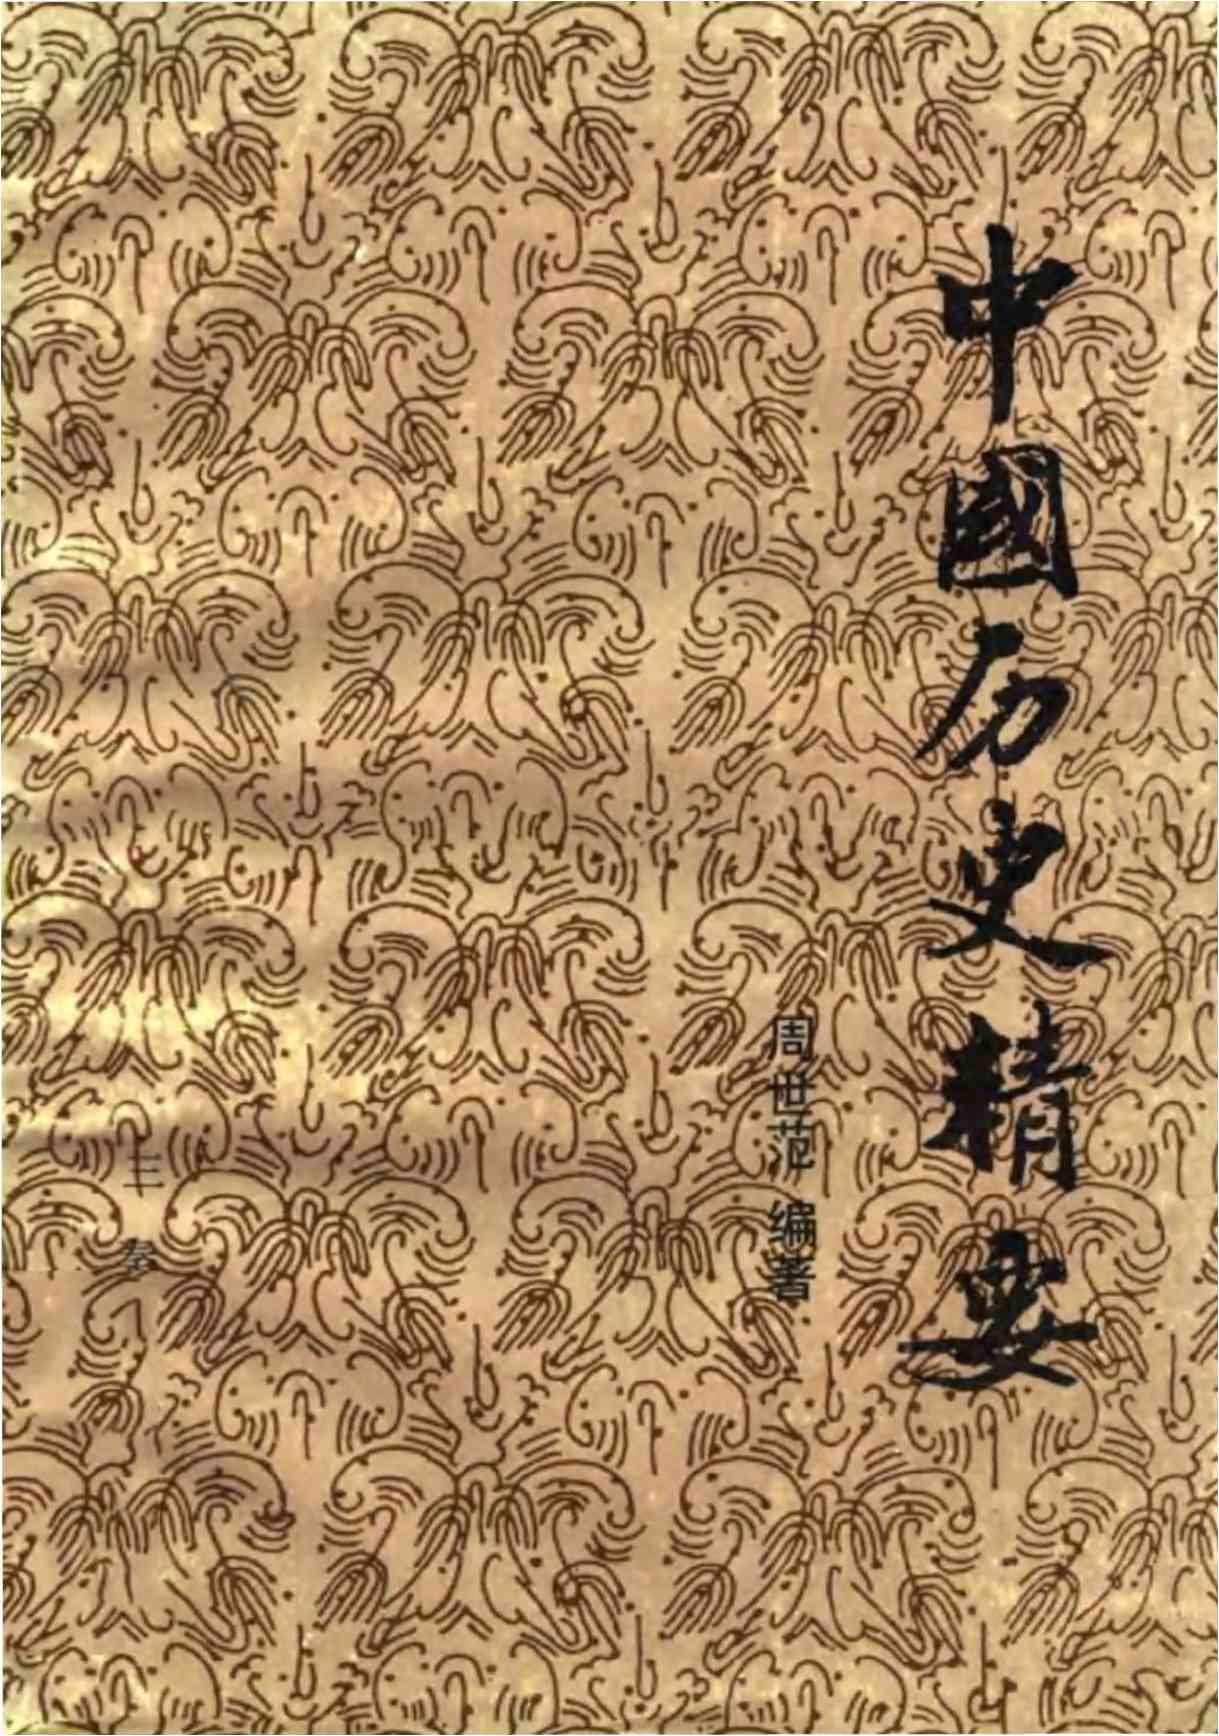 中國历史精要
周世范 编著
三秦